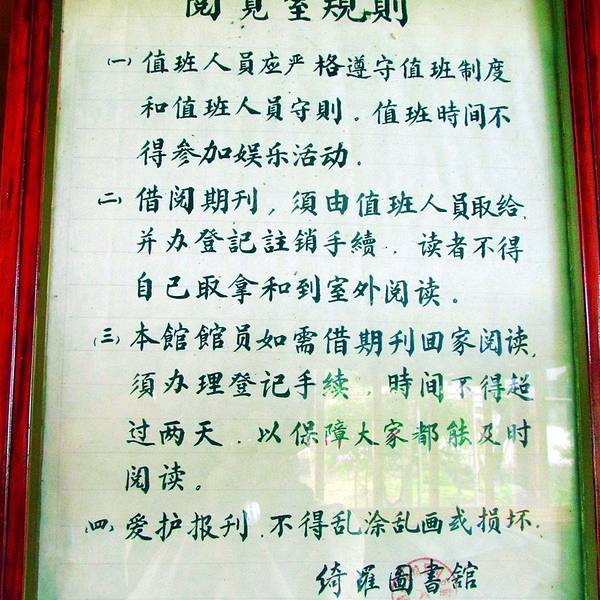 閱覽室規則
㈠ 值班人員应严格遵守值班制度
和值班人员守則。值班時间不
得参加娱乐活动.
㈡ 借阅期刊,須由值班人員取给,
并办登記註銷手續.读者不得
自己取拿和到室外阅读。
㈢ 本館館员如需借期刊回家阅读,
須办理登记手续,時间不得超
过两天.以保障大家都能及时
阅读。
㈣ 爱护报刊.不得乱涂乱画或损坏.
绮羅圖書舘